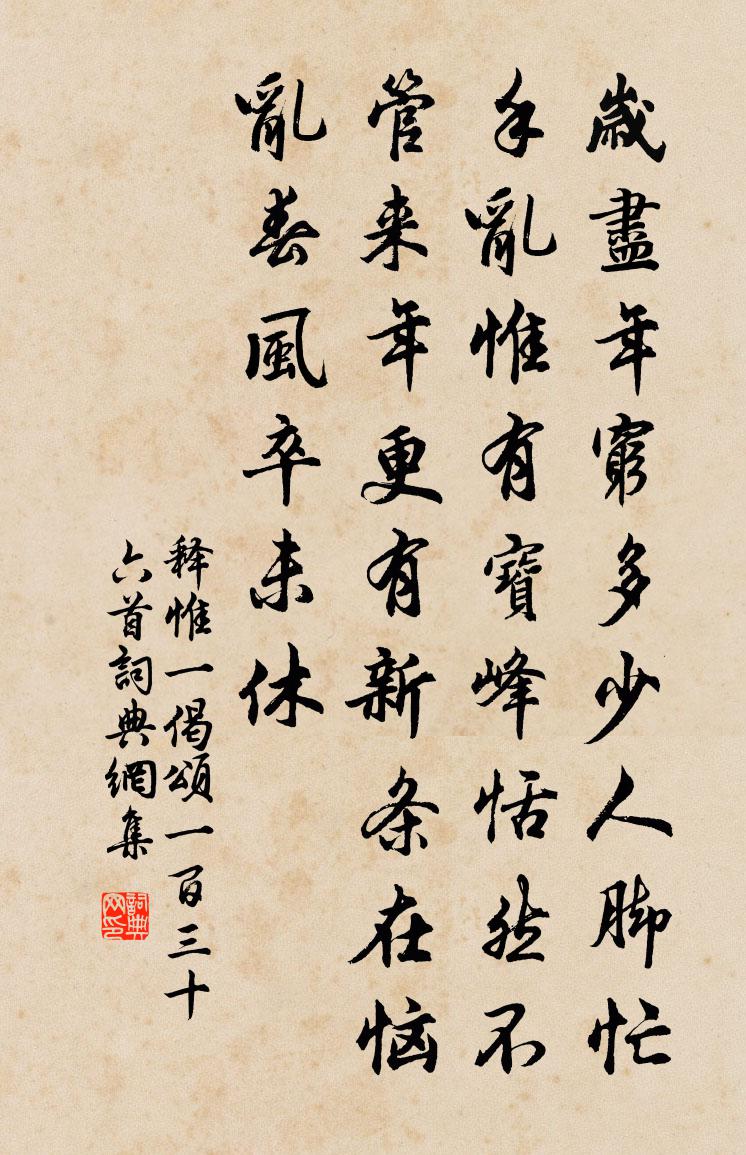 歲盡年窮多少人脚忙
手亂惟有寶峰恬然不
管来年更有新条在恼
亂春風卒未休
释惟一偈頌一百三十
六首詞典網集
詞典网印